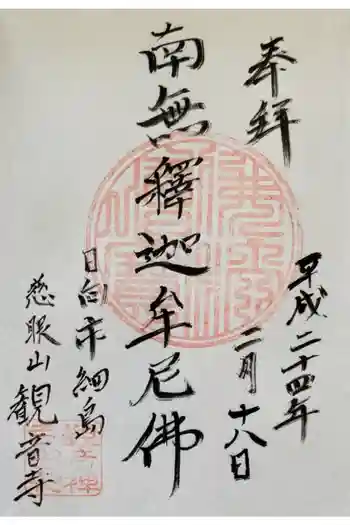 奉拝
平成二十四年
二月十八日
南無釋迦牟尼佛
日向市細島
慈眼山観音寺